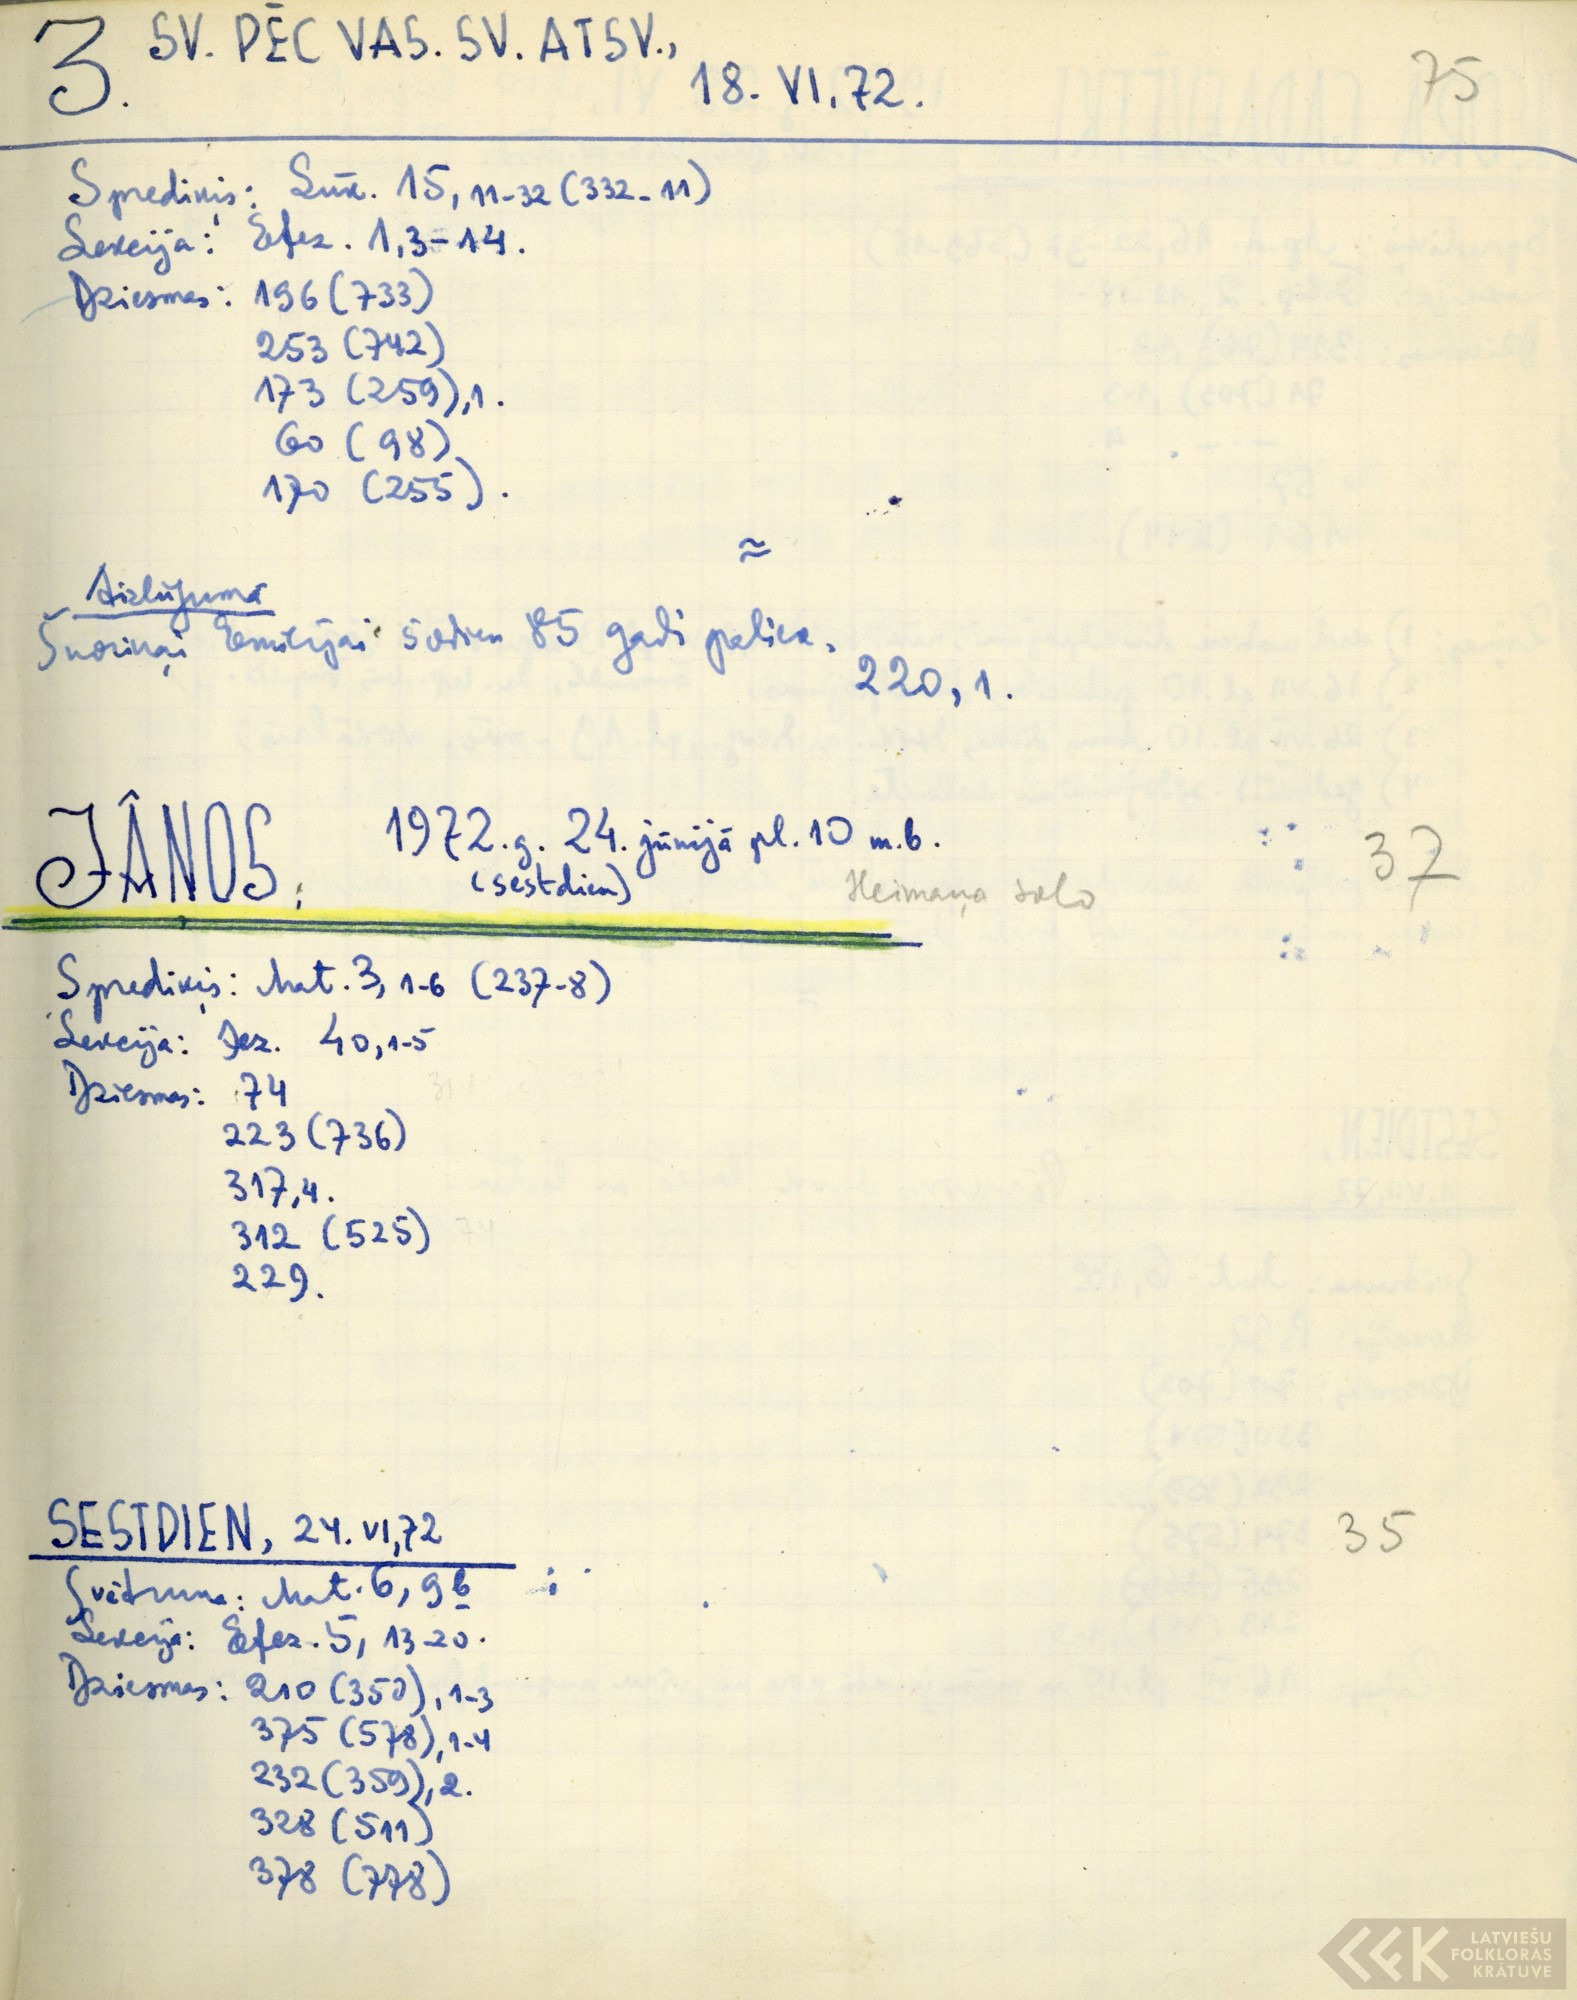 3. SV. PĒC VAS. SV. ATSV.,
18. VI, 72.
75
Sprediķis: Lūk. 15, 11-32 (332-11)
Lekcija: Efez. 1, 3-14.
Dziesmas: 196 (733)
253 (742)
173 (259), 1.
60 (98)
170 (255).
≈
Aizlūgumā
Emilijai šodien 85 gadi paliek.
220, 1.
JÂŅOS: 1972. g. 24. jūnijā pl. 10 m. b.
(sestdien)
Heimaņa solo
37
Sprediķis: Mat. 3, 1-6 (237-8)
Lekcija: Jez. 40, 1-5
Dziesmas: 74
223 (736)
317, 4.
312 (525)
229.
SESTDIEN, 24. VI, 72
35
Svētruna: Mat. 6, 9b
Lekcija: Efez. 5, 13-20.
Dziesmas: 210 (350), 1-3
375 (578), 1-4
232 (359), 2.
328 (511)
378 (778)
LATVIEŠU
FOLKLORAS
KRĀTUVE